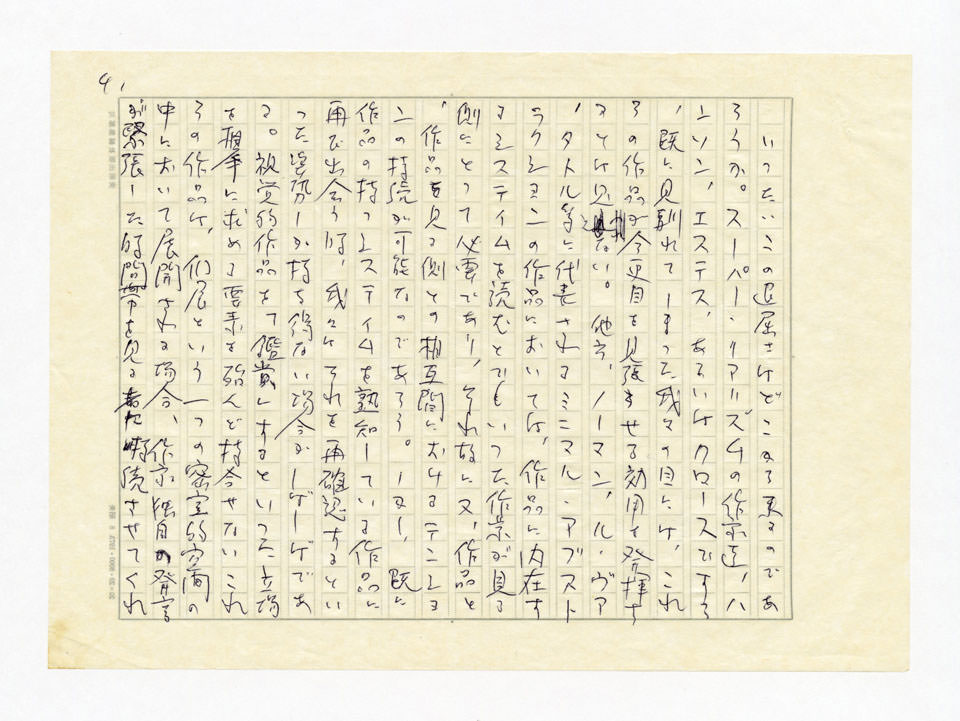 4,
いったいこの退屈さはどこから来るのであ
ろうか。スーパー・リアリズムの作家達、ハ
ンソン、エステス、あるいはクロースですら
、既に見馴れてしまった我々の目には、これ
らの作品が今更目を見張ませる効用を発揮す
るとは見えない。他方、ノーマン、ル・ヴァ
、タトル等に代表されるミニマル・アブスト
ラクションの作品においては、作品に内在す
るシスティムを読むとでもいった作業が見る
側にとって必要であり、それ故に又、作品と
、作品を見る側との相互間におけるテンショ
ンの持続が可能なのであろう。しかし、既に
作品の持つシスティムを熟知している作品に
再び出会う時、我々はそれを再確認するとい
った姿勢しか持ち得ない場合がしばしばであ
る。視覚的作品をて鑑賞するといった立場
を相手に求める要素を殆んど持合せないこれ
らの作品は、個展という一つの密室的空間の
中において展開される場合、作家独自の発言
が緊張した時間帯を見る者に持続させてくれ